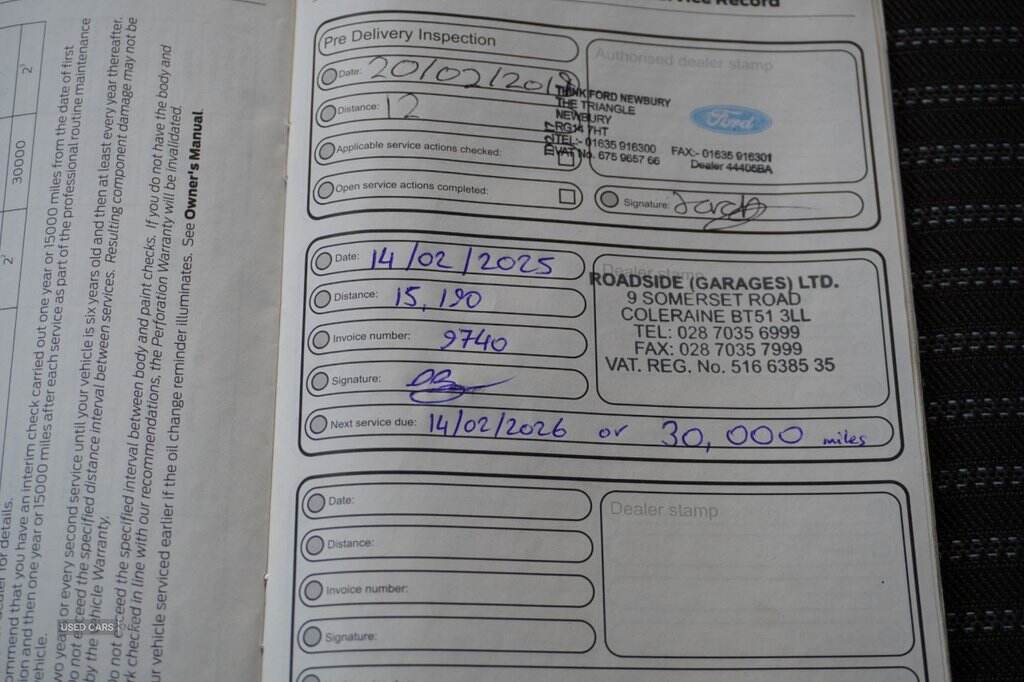 2)
30000
2)
dealer for details.
ommend that you have an interim check carried out one year or 15000 miles from the date of first
ion and then one year or 15000 miles after each service as part of the professional routine maintenance
vehicle.
wo years or every second service until your vehicle is six years old and then at least every year thereafter.
o not exceed the specified distance interval between services. Resulting component damage may not be
by the Vehicle Warranty.
o not exceed the specified interval between body and paint checks. If you do not have the body and
k checked in line with our recommendations, the Perforation Warranty will be invalidated.
ur vehicle serviced earlier if the oil change reminder illuminates. See Owner's Manual.
USED CARS
Record
Pre Delivery Inspection
Date: 20/02/2018
Distance: 12
Applicable service actions checked:
Open service actions completed:
Authorised dealer stamp
THINK FORD NEWBURY
THE TRIANGLE
NEWBURY
RG14 7HT
TEL:- 01635 916300 FAX:- 01635 916301
VAT No. 675 9657 66 Dealer 44406BA
Ford
Signature:
Date: 14/02/2025
Distance: 15,190
Invoice number: 9740
Signature:
Next service due: 14/02/2026 or 30,000 miles
Dealer stamp
ROADSIDE (GARAGES) LTD.
9 SOMERSET ROAD
COLERAINE BT51 3LL
TEL: 028 7035 6999
FAX: 028 7035 7999
VAT. REG. No. 516 6385 35
Date:
Distance:
Invoice number:
Signature:
Dealer stamp